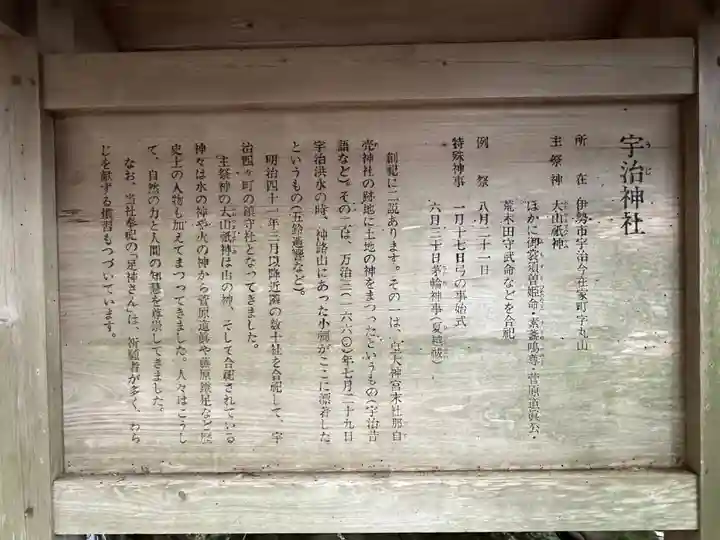 宇治神社
所在 伊勢市宇治今在家町字丸山
主祭神 大山祇神
ほかに御裳須曽姫命・素盞嗚尊・菅原道眞公・
荒木田守武命などを合祀
例祭 八月二十一日
特殊神事 一月十七日弓の事始式
六月三十日茅輪神事(夏越祓)
創祀に二説あります。その一は、皇大神宮末社那自
売神社の跡地に土地の神をまつったというもの(宇治昔
語など)。その二は、万治三(一六六〇)年七月二十九日
宇治洪水の時、神路山にあった小祠がここに漂着した
というもの(五鈴遺響など)。
明治四十一年三月以降近隣の数十社を合祀して、宇
治四ヶ町の鎮守社となってきました。
主祭神の大山祇神は山の神、そして合祀されている
神々は水の神や火の神から菅原道眞や藤原鎌足など歴
史上の人物も加えてまつってきました。人々はこうし
て、自然の力と人間の知慧を尊崇してきました。
なお、当社奉祀の「足神さん」は、祈願者が多く、わら
じを献する慣習もつづいています。